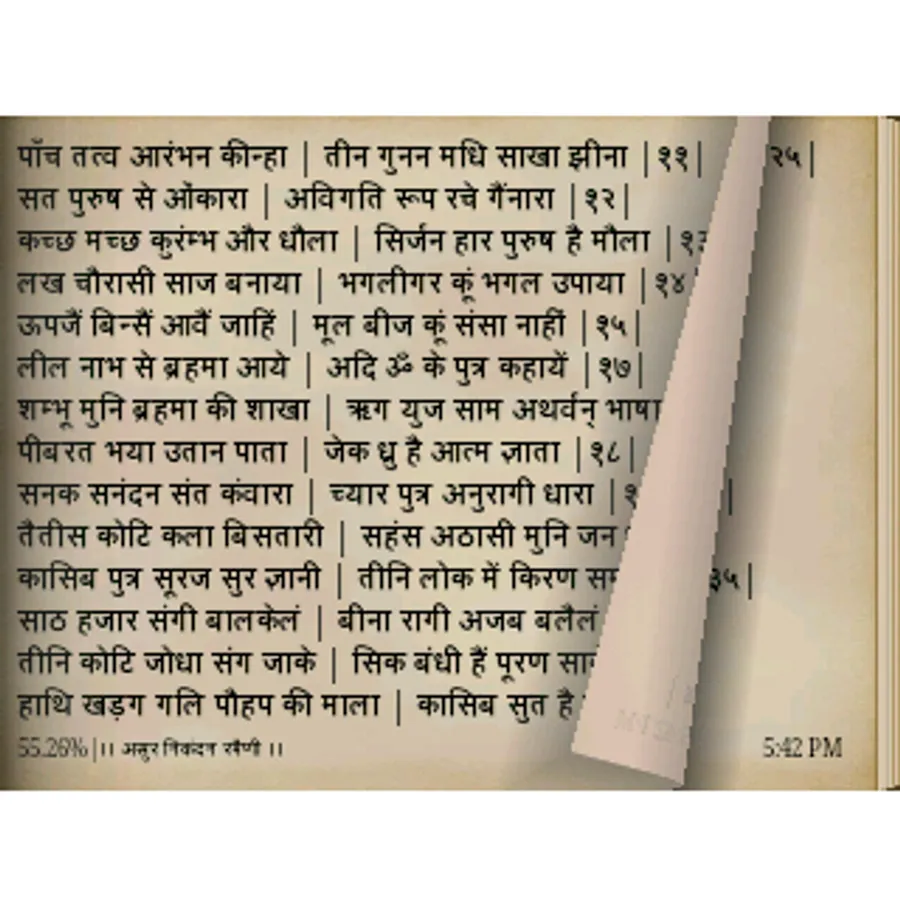 पाँच तत्व आरंभन कीन्हा | तीन गुनन मधि साखा झीना |११| २५|
सत पुरुष से ओंकारा | अविगति रूप रचे गैंनारा |१२|
कच्छ मच्छ कुरंम्भ और धौला | सिर्जन हार पुरुष है मौला |१३
लख चौरासी साज बनाया | भगलीगर कूं भगल उपाया |१४
ऊपजैं बिन्सैं आवैं जाहिं | मूल बीज कूं संसा नाहीं |१५|
लील नाभ से ब्रहमा आये | अदि ॐ के पुत्र कहायें |१७|
शम्भू मुनि ब्रहमा की शाखा | ऋग युज साम अथर्वन् भाषा
पीबरत भया उतान पाता | जेक ध्रु है आत्म ज्ञाता |१८|
सनक सनंदन संत कंवारा | च्यार पुत्र अनुरागी धारा | |
तैतीस कोटि कला बिसतारी | सहंस अठासी मुनि जन
कासिब पुत्र सूरज सुर ज्ञानी | तीनि लोक में किरण ३५|
साठ हजार संगी बालकेलं | बीना रागी अजब बलैलं
तीनि कोटि जोधा संग जाके | सिक बंधी हैं पूरण
हाथि खड़ग गलि पौहप की माला | कासिब सुत है
55.26% |।। असुर निकंदन रमैणी ।। 5:42 PM